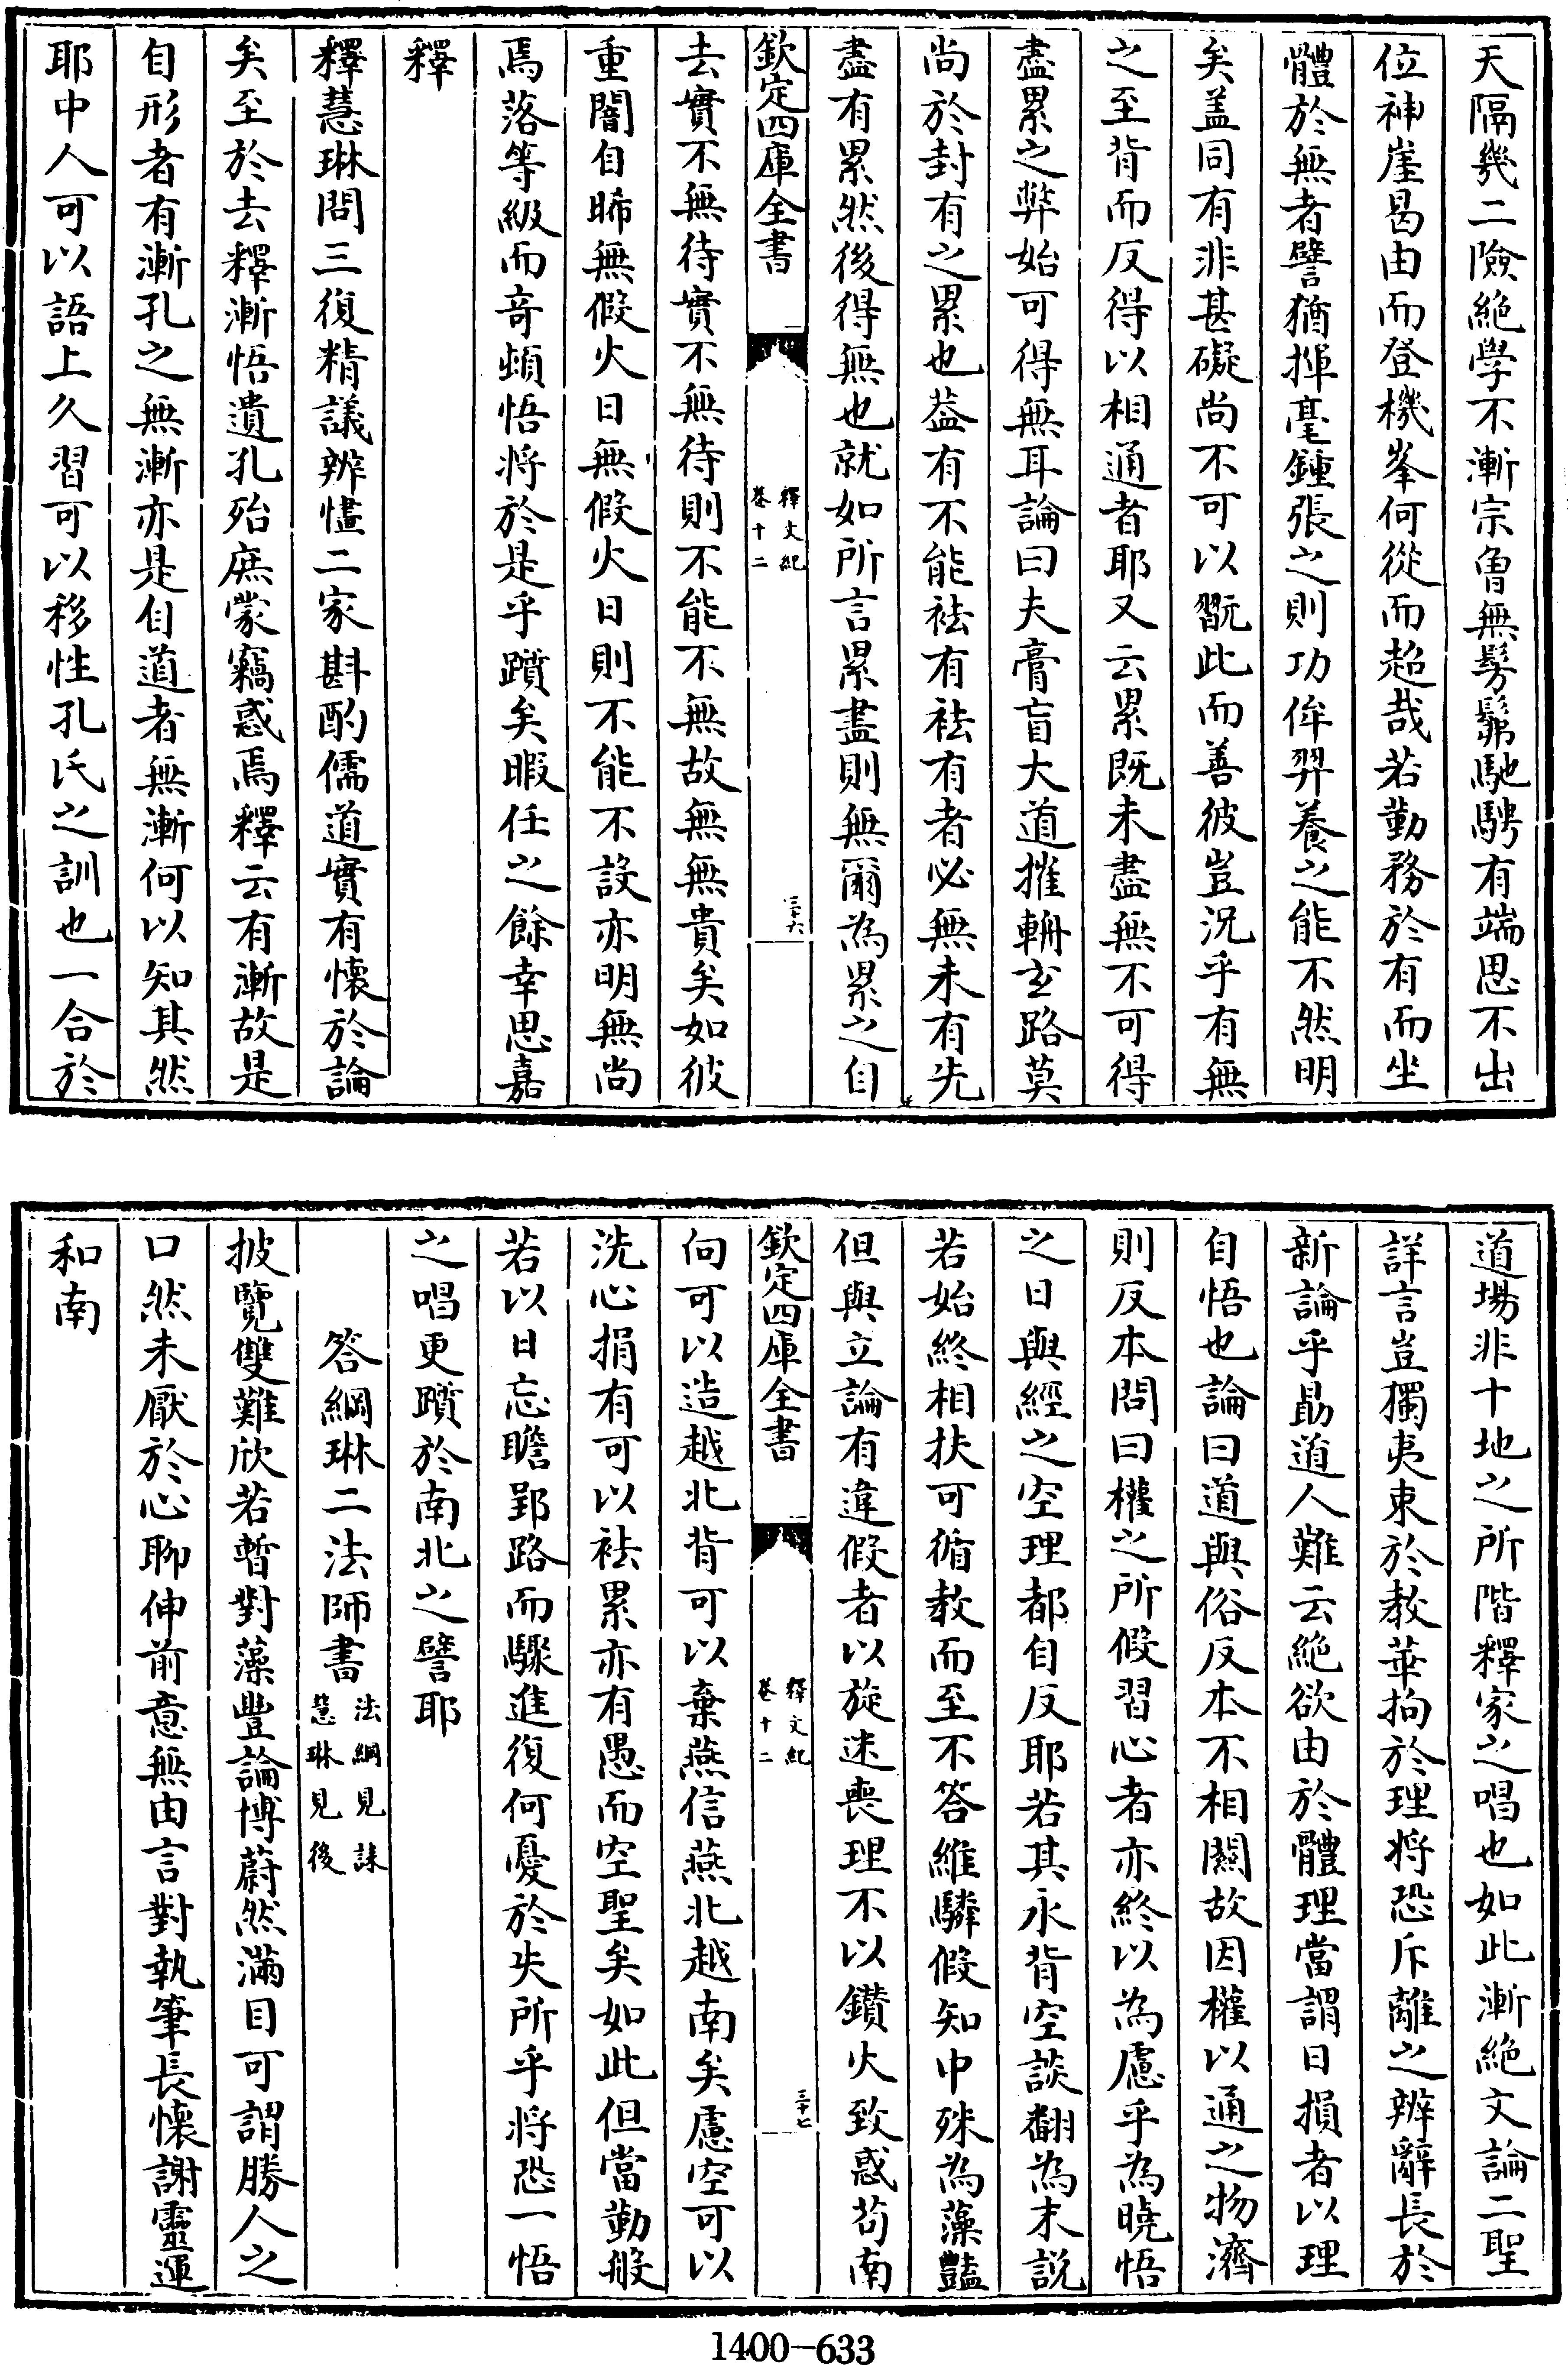 天隔幾二險絶學不漸宗魯無髣髴馳騁有端思不出
位神崖曷由而登機峯何從而超哉若勤務於有而坐
體於無者譬猶揮毫鍾張之則功侔羿養之能不然明
矣盖同有非甚礙尚不可以翫此而善彼豈況乎有無
之至背而反得以相通者耶又云累既未盡無不可得
盡累之弊始可得無耳論曰夫膏肓大道摧輈玄路莫
尚於封有之累也葢有不能袪有袪有者必無未有先
盡有累然後得無也就如所言累盡則無爾為累之自
欽定四庫全書
釋文紀
卷十二
三十六
去實不無待實不無待則不能不無故無無貴矣如彼
重闇自晞無假火日無假火日則不能不設亦明無尚
焉落等級而竒頓悟將於是乎躓矣暇任之餘幸思嘉
釋
釋慧琳問三復精議辨㦎二家斟酌儒道實有懷於論
矣至於去釋漸悟遺孔殆庶蒙竊惑焉釋云有漸故是
自形者有漸孔之無漸亦是自道者無漸何以知其然
耶中人可以語上久習可以移性孔氏之訓也一合於
道場非十地之所階釋家之唱也如此漸絶文論二聖
詳言豈獨夷束於教華拘於理將恐斥離之辨辭長於
新論乎勗道人難云絶欲由於體理當謂日損者以理
自悟也論曰道與俗反本不相關故因權以通之物濟
則反本問曰權之所假習心者亦終以為慮乎為曉悟
之日與經之空理都自反耶若其永背空談翻為末說
若始終相扶可循教而至不答維驎假知中殊為藻豔
但與立論有違假者以旋迷喪理不以鑽火致惑苟南
欽定四庫全書
釋文紀
卷十二
三十七
向可以造越北背可以棄燕信燕北越南矣慮空可以
洗心捐有可以袪累亦有愚而空聖矣如此但當勤般
若以日忘瞻郢路而驟進復何憂於失所乎將恐一悟
之唱更躓於南北之譬耶
答綱琳二法師書法綱見誄
慧琳見後
披覽雙難欣若暫對藻豐論博蔚然滿目可謂勝人之
口然未厭於心聊伸前意無由言對執筆長懷謝靈運
和南
1400-633